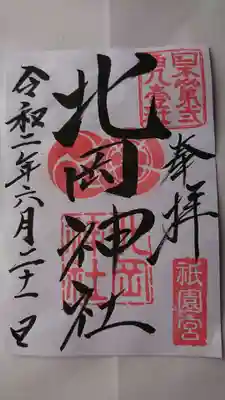 奉拝
祇園宮
北岡神社
北岡
神社
令和二年六月二十一日